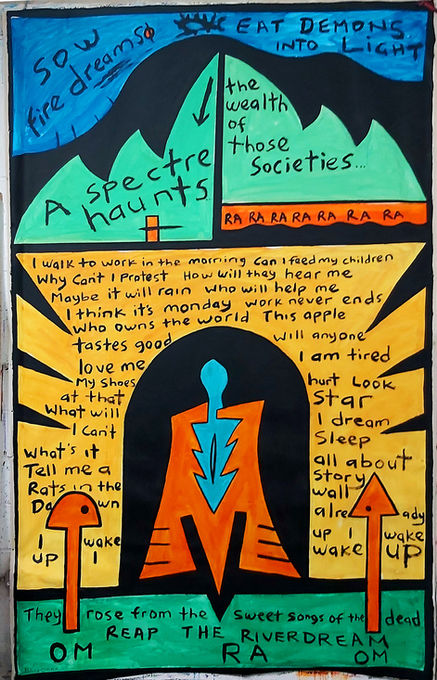 SOW
fire dreams
EAT DEMONS
INTO LIGHT
the
wealth
of
those
societies...
A spectre
haunts
RA RA RA RA RA RA RA
I walk to work in the morning Can I feed my children
Why Can't I Protest How will they hear me
Maybe it will rain who will help me
I think it's monday work never ends
who owns the world This apple
tastes good will anyone
love me I am tired
My Shoes hurt Look
at that Star
What will I dream
I can't Sleep
What's it all about
Tell me a Story
Rats in the wall
Da wn alre ady
I wake up I wake
UP I wake UP
They rose from the sweet songs of the dead
REAP THE RIVERDREAM
OM RA OM